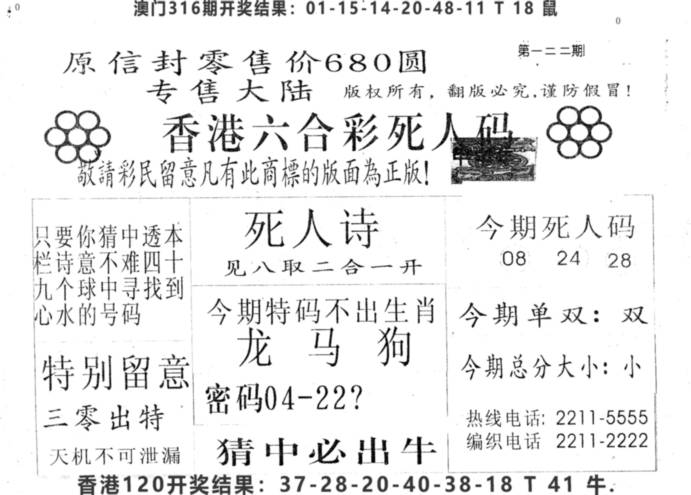 澳门316期开奖结果：01-15-14-20-48-11 T 18 鼠
原信封零售价680圆
第一二二期
专售大陆
版权所有，翻版必究，谨防假冒！
香港六合彩死人码
敬請彩民留意凡有此商標的版面為正版！
只要你猜中透本
栏诗意不难四十
九个球中寻找到
心水的号码
特别留意
三零出特
天机不可泄漏
死人诗
见八取二合一开
今期特码不出生肖
龙 马 狗
密码04-22？
猜中必出牛
今期死人码
08 24 28
今期单双：双
今期总分大小：小
热线电话：2211-5555
编织电话 2211-2222
香港120开奖结果：37-28-20-40-38-18 T 41 牛.